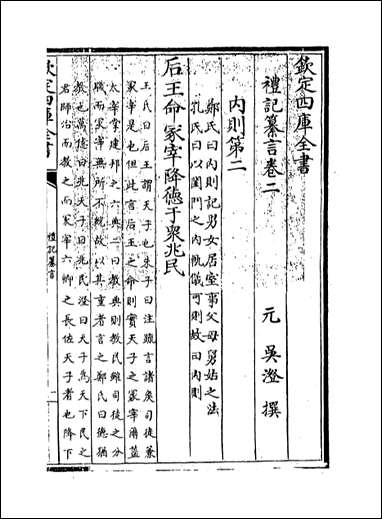 欽定四庫全書
禮記纂言卷二
元 吳澄 撰
內則第二
鄭氏曰內則記男女居室事父母舅姑之法
孔氏曰以閨門之內軌儀可則故曰內則
后王命冢宰降德于衆兆民
王氏曰后王謂天子也朱子曰注疏言諸矦司徒兼
冢宰是也但此言后王之命則實天子之冢宰爾蓋
太宰掌建邦之六典二曰教典則教民雖司徒之分
職而冢宰無所不統故以其重者言之鄭氏曰德猶
教也萬億曰兆天子曰兆民澄曰天子為天下民之
君師治而教之而冢宰六卿之長佐天子者也降下
欽定四庫全書
禮記纂言